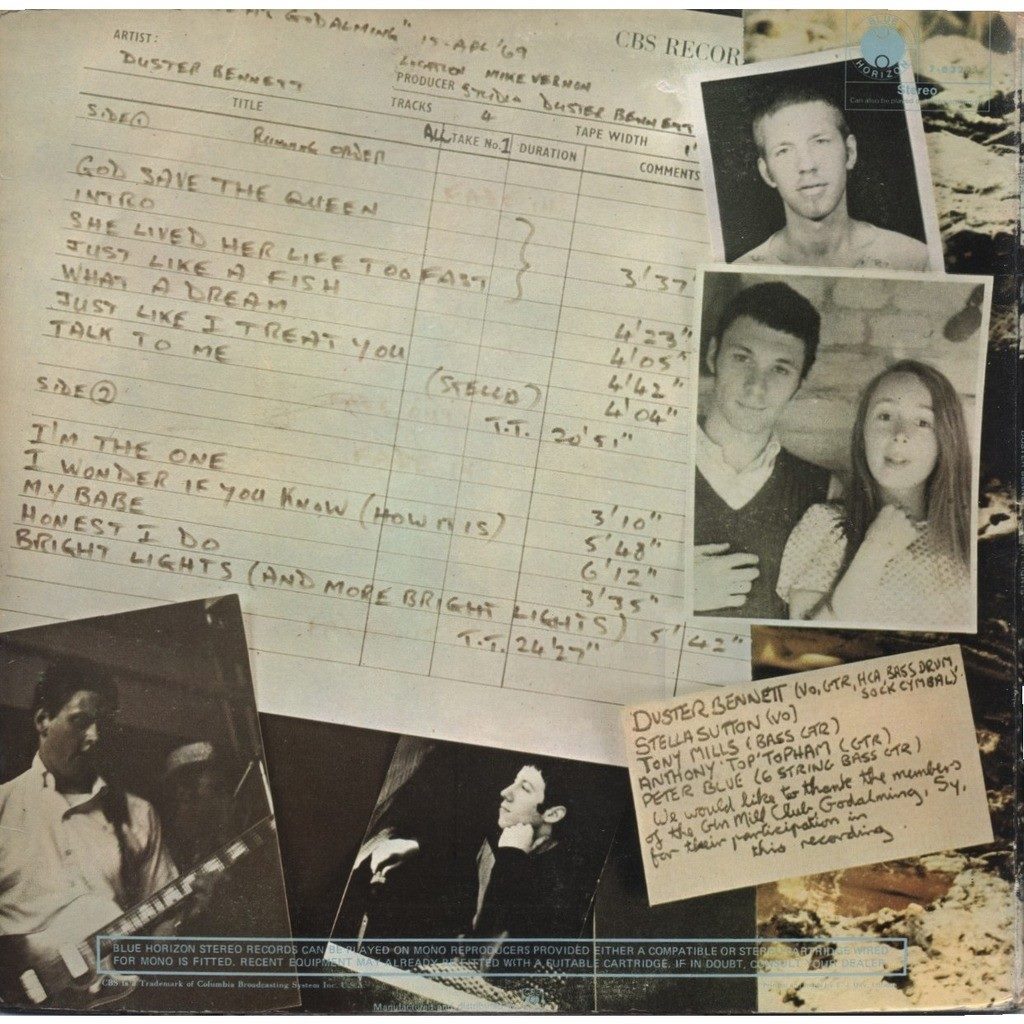 GODALMING" 15-APL '69
CBS RECOR
ARTIST:
DUSTER BENNETT
LOCATION MIKE VERNON
PRODUCER STUDIO DUSTER BENNETT
TITLE
TRACKS
4
TAPE WIDTH
1"
SIDE ①
RUNNING ORDER
ALL TAKE No. 1
DURATION
COMMENTS
GOD SAVE THE QUEEN
INTRO
SHE LIVED HER LIFE TOO FAST } 3'37"
JUST LIKE A FISH 4'23"
WHAT A DREAM 4'05"
JUST LIKE I TREAT YOU 4'42"
TALK TO ME (STELLA) 4'04"
T.T. 20'51"
SIDE ②
I'M THE ONE 3'10"
I WONDER IF YOU KNOW (HOW IT IS) 5'48"
MY BABE 6'12"
HONEST I DO 3'35"
BRIGHT LIGHTS (AND MORE BRIGHT LIGHTS) 5'42"
T.T. 24'27"
BLUE
HORIZON
Stereo
Can also be played
DUSTER BENNETT (VO, GTR, HCA, BASS DRUM,
SOCK CYMBAL)
STELLA SUTTON (VO)
TONY MILLS (BASS GTR)
ANTHONY 'TOP' TOPHAM (GTR)
PETER BLUE (6 STRING BASS GTR)
We would like to thank the members
of the Gin Mill Club, Godalming, Sy,
for their participation in
this recording
BLUE HORIZON STEREO RECORDS CAN BE PLAYED ON MONO REPRODUCERS PROVIDED EITHER A COMPATIBLE OR STEREO CARTRIDGE WIRED
FOR MONO IS FITTED. RECENT EQUIPMENT MAY ALREADY BE FITTED WITH A SUITABLE CARTRIDGE. IF IN DOUBT, CONSULT YOUR DEALER.
CBS is a Trademark of Columbia Broadcasting System Inc. U.S.A.
Manufactured and